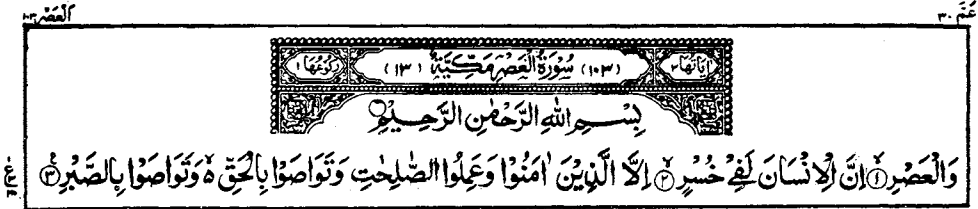 عَمَّ ٣٠
اَلْعَصْر ١٠٣
اٰيَاتُهَا ٣
(١٠٣) سُوْرَةُ الْعَصْرِ مَكِّيَّةٌ (١٣)
رُكُوْعُهَا ١
بِسْمِ اللّٰهِ الرَّحْمٰنِ الرَّحِيْمِ
وَالْعَصْرِ ۙ﴿١﴾ اِنَّ الْاِنْسَانَ لَفِيْ خُسْرٍ ۙ﴿٢﴾ اِلَّا الَّذِيْنَ اٰمَنُوْا وَعَمِلُوا الصّٰلِحٰتِ وَتَوَاصَوْا بِالْحَقِّ ۙ۬ وَتَوَاصَوْا بِالصَّبْرِ ﴿٣﴾